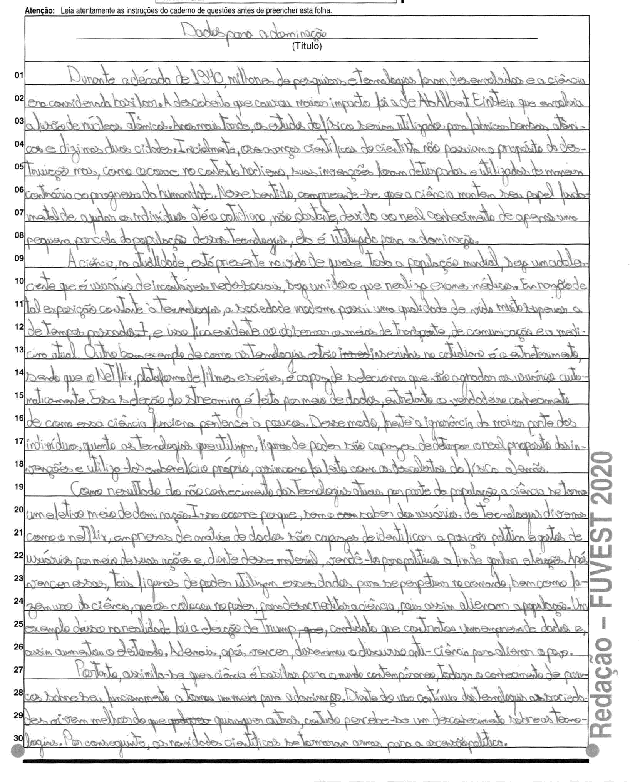 Atenção: Leia atentamente as instruções do caderno de questões antes de preencher esta folha.
Dados para a dominação
(Título)
01 Durante a década de 1940, milhões de pesquisas e tecnologias foram desenroladas e a ciência
02 era considerada basilar. A descoberta que causou maior impacto foi a de Albert Einstein que envolvia
03 a fusão de núcleos atômicos. Anos mais tarde, os estudos do físico seriam utilizados para fabricar bombas atômi-
04 cas e dizimar duas cidades. Inicialmente, os avanços científicos do cientista não possuíam o propósito da des-
05 truição mas, como ocorre no contexto hodierno, suas intenções foram deturpadas e utilizadas de maneira
06 contrária ao progresso da humanidade. Nesse sentido, compreende-se que a ciência mantém seu papel funda-
07 mental de ajudar os indivíduos até o cotidiano, não obstante, devido ao real conhecimento de apenas uma
08 pequena parcela da população dessas tecnologias, ela é utilizada para a dominação.
09 A ciência, na atualidade, está presente na vida de quase toda a população mundial, seja um adoles-
10 cente que é usuário de incontáveis redes sociais, seja um idoso que realiza exames médicos. Em razão de
11 tal exposição constante à tecnologia, a sociedade moderna possui uma qualidade de vida muito superior a
12 de tempos passados, e isso fica evidente ao observar os meios de transporte, de comunicação e a medi-
13 cina atual. Outro bom exemplo de como as tecnologias estão inseridas no cotidiano é o entretenimento,
14 sendo que o Netflix, plataforma de filmes e séries, é capaz de selecionar que vão agradar os usuários auto-
15 maticamente. Essa seleção do streaming é feita por meio de dados, entretanto o verdadeiro conhecimento
16 de como essa ciência funciona pertence a poucos. Desse modo, frente a ignorância da maior parte dos
17 indivíduos quanto as tecnologias que utilizam, figuras de poder são capazes de deturpar o real propósito das in-
18 venções e utilizá-las em benefício próprio, assim como foi feito com as descobertas do físico alemão.
19 Como resultado do não conhecimento das tecnologias atuais por parte da população, a ciência se torna
20 um efetivo meio de dominação. Isso ocorre porque, sem o saber dos usuários de tecnologias diversas
21 como o netflix, empresas de análise de dados são capazes de identificar a posição política e gostos de
22 usuários por meio de suas ações e, diante desse material, vendê-lo para políticos a fim de ganhar eleições. Após
23 vencer essas, tais figuras de poder utilizam esses dados para se perpetuar no comando, bem como fa-
24 zem uso da ciência, que os colocou no poder, para desacreditar a ciência, pois assim alienam a população. Um
25 exemplo disso na realidade foi a eleição de Trump, candidato que contratou uma empresa de dados e,
26 assim aumentou o eleitorado. Ademais, após vencer, disseminou o discurso anti-ciência para alienar o povo.
27 Portanto, assimila-se que a ciência é basilar para o mundo contemporâneo, todavia o conhecimento de pou-
28 cos sobre seu funcionamento a tornou um meio para a dominação. Diante do uso contínuo das tecnologias as socieda-
29 des vivem melhor do que quaisquer outras, contudo percebe-se um desconhecimento sobre as tecno-
30 logias. Por conseguinte, as novidades científicas se tornaram armas para a ascensão política.
Redação – FUVEST 2020